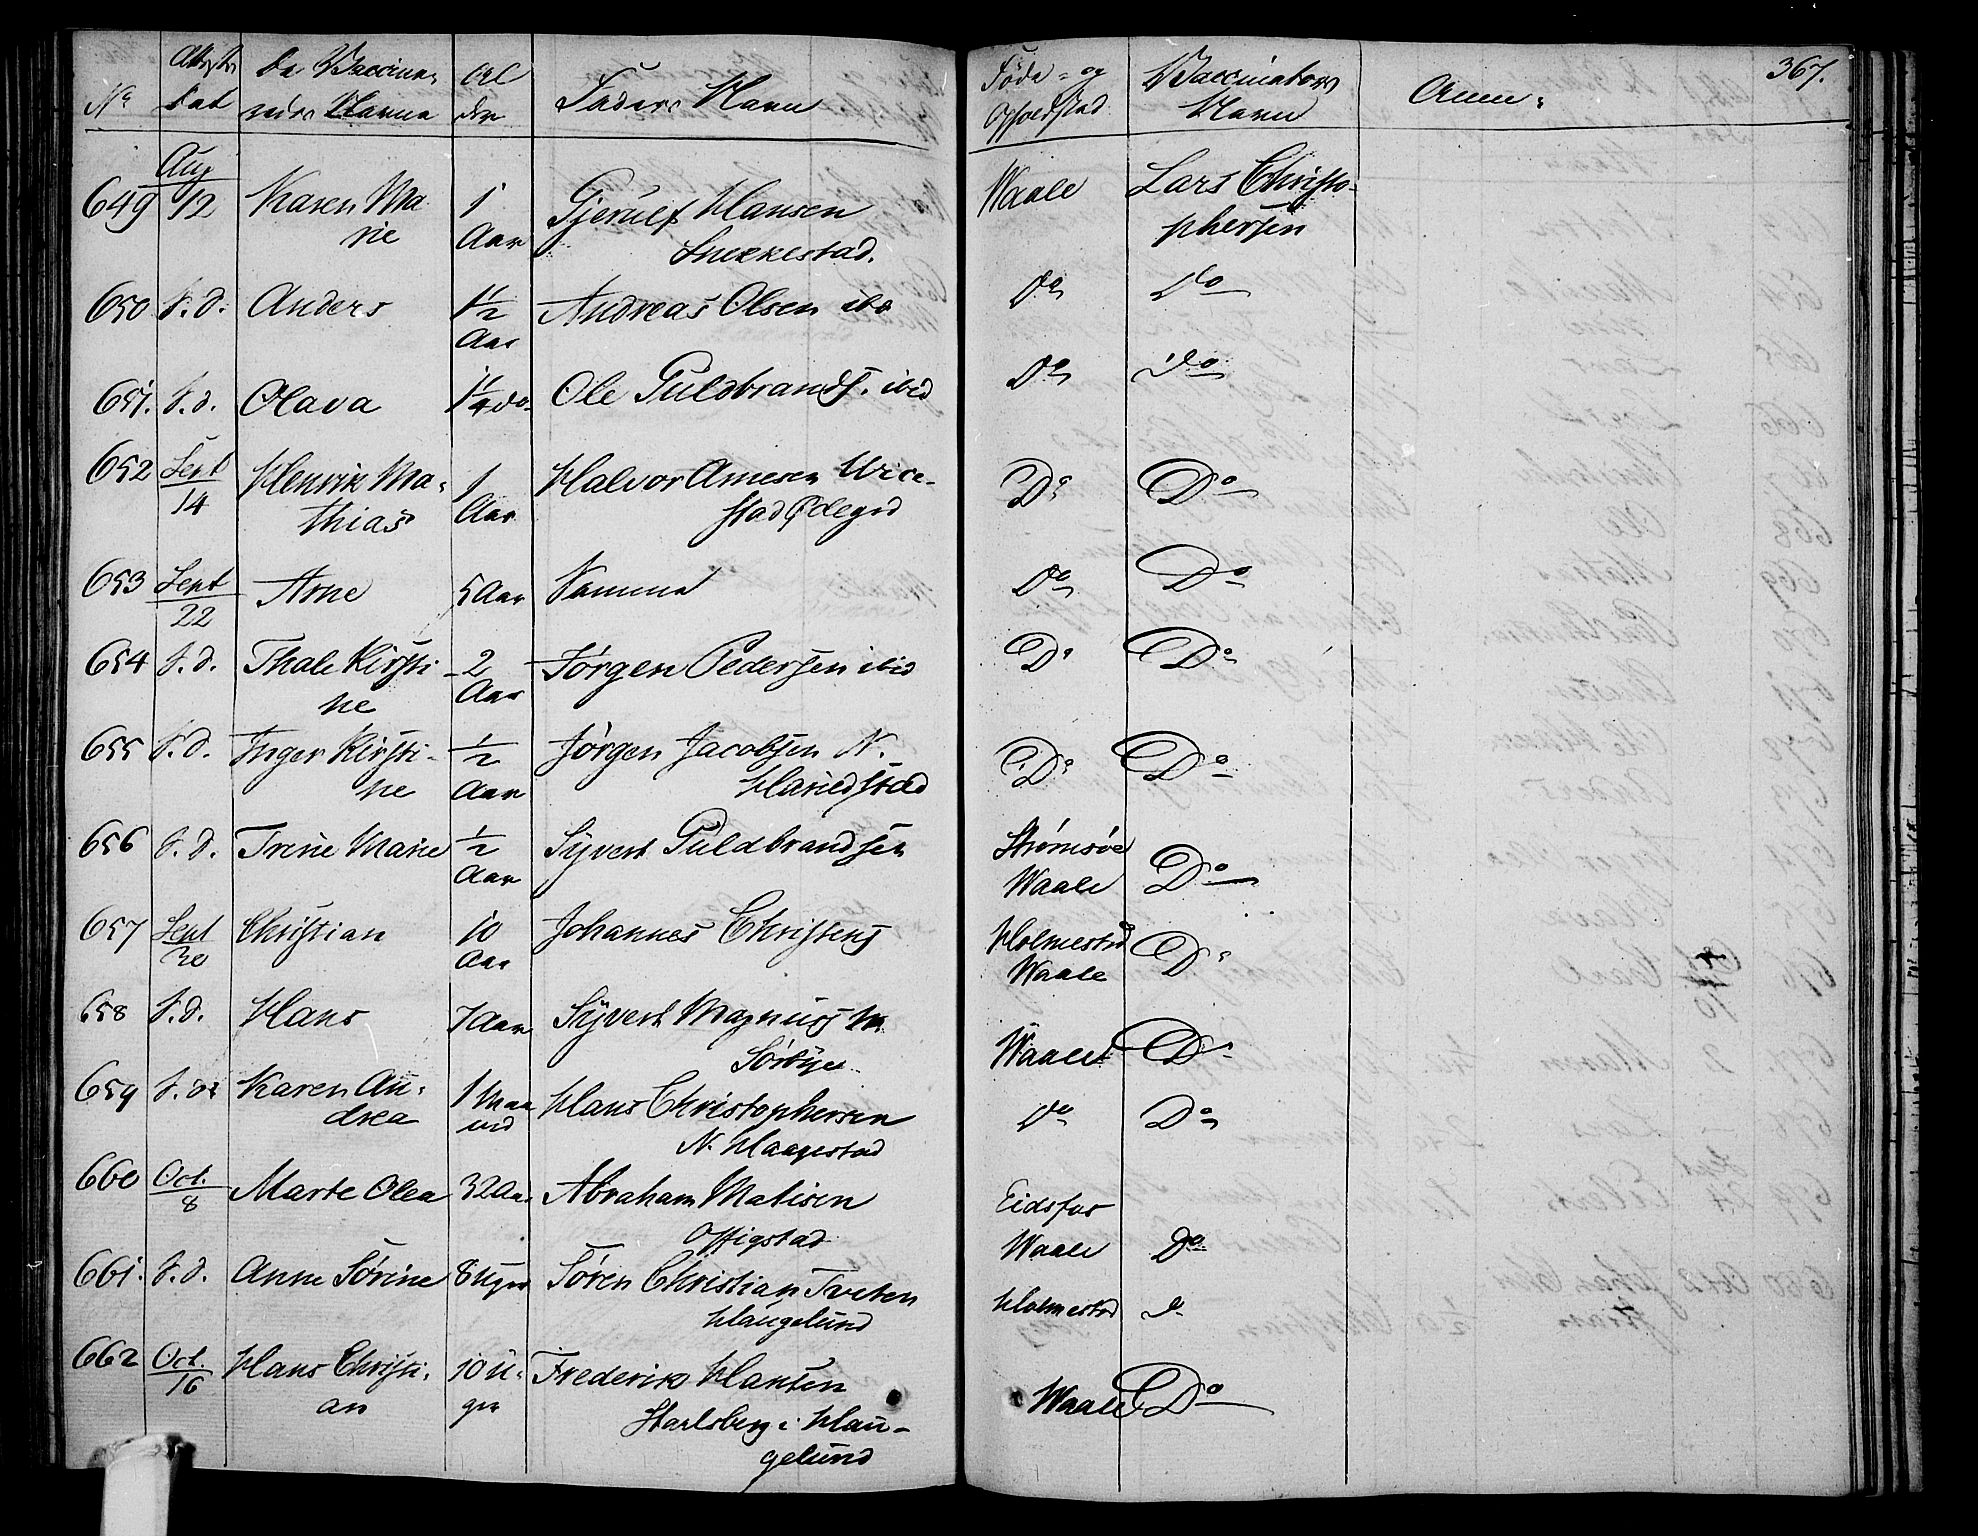 367.
No Attests Dat De Vaccine- redes Navne Al der Faders Navn Føde- og Opholdstad Vaccinators Navn Anm:
Aug
649 12 Karen Ma rie 1 Aar Gjerulf Hansen Snekkestad. Waale Lars Christo- phersen
650 S. d. Anders 1 1/2 Aar Andreas Olsen ibd Do Do
651. S. d. Olava 1 1/4 do. Ole Guldbrands. ibid Do Do
652 Sept 14 Henrik Ma- thias 1 Aar Halvor Arnesen stad Ødegrd Do Do
653 Sept 22 Arne 5 Aar Samme Do Do
654 S. d. Thale Kirsti- ne 2 Aar Jørgen Pedersen ibid Do Do
655 S. d. Inger Kirsti- ne 1/2 Aar Jørgen Jacobsen N. Do Do
656 S. d. Trine Marie 1/2 Aar Syvert Guldbrandsen Strømsøe Waale Do
657 Sept 30 Christian 10 Aar Johannes Christens Holmestrd Waale Do
658 S. d. Hans 7 Aar Syvert Magnus Sørbye Waale Do
659 S. d. Karen An- drea 1 Maa ned Hans Christophersen N. Haagestad Do Do
660 Oct. 8 Marte Olea 32 Aar Abraham Matisen Offigstad Eidsfos Waale Do
661. S. d. Anne Sørine 8 Uger Søren Christian Tveten Haugelund Holmestrd Do
662 Oct. 16 Hans Christi- an 10 U- ger Frederik Hansen i Hau- gelund Waale Do